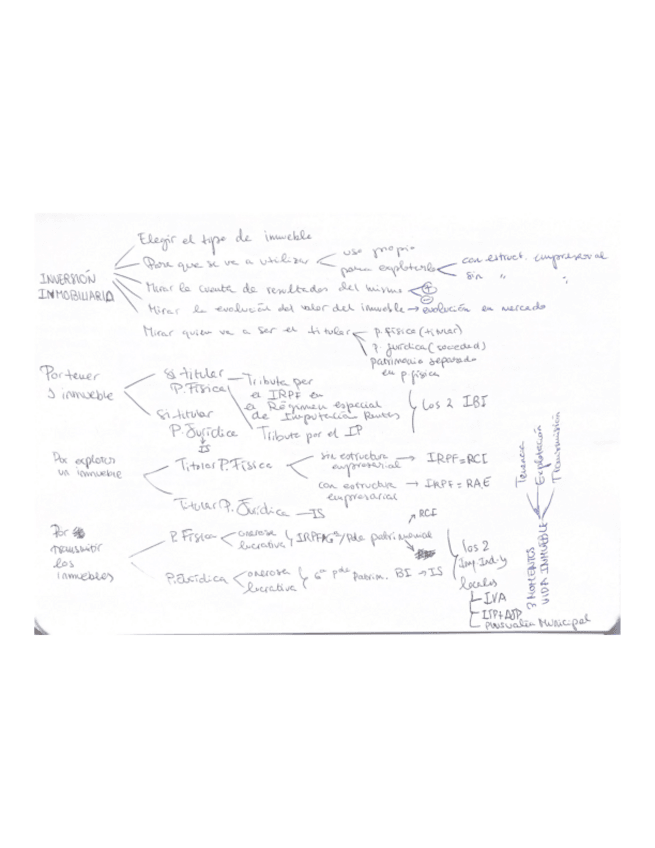 INVERSIÓN INMOBILIARIA
Elegir el tipo de inmueble
Para que se va a utilizar
uso propio
para explotarlo
con estruct. empresarial
sin " "
Mirar la cuenta de resultados del mismo
+
-
Mirar la evolución del valor del inmueble → evolución en mercado
Mirar quien va a ser el titular
p. física (titular)
P. Jurídica (sociedad)
patrimonio separado
en p. física
Por tener
inmueble
Si titular
P. Física
Tributa por
el IRPF en
el Régimen especial
de Imputación Rentas
Tributa por el IP
Si titular
P. Jurídica
IS
los 2 IBI
Por explotar
un inmueble
Titular P. Física
sin estructura
empresarial → IRPF = RCI
con estructura → IRPF = RAE
empresarial
Titular P. Jurídica — IS
Por
transmitir
los
inmuebles
P. Física
onerosa
lucrativa
IRPF
patrimonial
RCI
P. Jurídica
onerosa
lucrativa
Patrim. BI → IS
los 2
Imp. Ind. y
locales
IVA
ITP+AJD
Plusvalía Municipal
3 MOMENTOS
VIDA INMUEBLE
Tenencia
Explotación
Transmisión